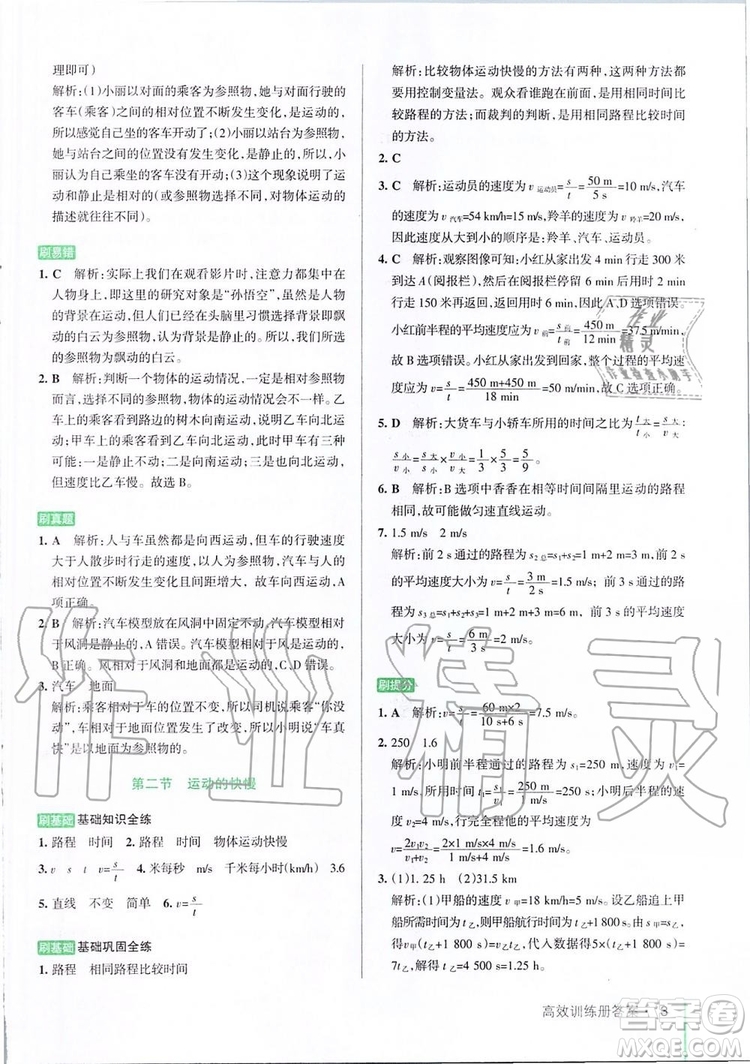 理即可)
解析:(1)小丽以对面的乘客为参照物,她与对面行驶的
客车(乘客)之间的相对位置不断发生变化,是运动的,
所以感觉自己坐的客车开动了;(2)小丽以站台为参照物,
她与站台之间的位置没有发生变化,是静止的,所以小
丽认为自己乘坐的客车没有开动;(3)这个现象说明了运
动和静止是相对的(或参照物选择不同,对物体运动的
描述就往往不同)。
刷易错
1. C 解析:实际上我们在观看影片时,注意力都集中在
人物身上,即这里的研究对象是“孙悟空”,虽然是人物
的背景在运动,但人们已经从大脑里习惯选择背景作
为参照物,认为背景是静止的,而不是运动的。所以,我
们所选的参照物为飘动的白云。
2. B 解析:判断一个物体的运动情况,一定是相对参照物
而言,选择的参照物不同,物体的运动情况可能不同。乙
车上的乘客看到路边的树木向南运动,说明乙车向北运
动;甲车上的乘客看到乙车向北运动,此时甲车有三种可
能:一是静止不动;二是向南运动;三是也向北运动,但速
度可能比乙车慢。故选B。
刷真题
1. A 解析:人与车虽然都是向西运动,但汽车的运动速度
大于人散步时行走的速度,以人为参照物,汽车与人的相
对位置和距离不断增大,故汽车向西运动,由此可知,A
项正确。
2. B 解析:汽车模型放在风洞中固定不动,汽车模型相对
于风洞是静止的,A错误。汽车模型相对于气流是运动
的,B正确。汽车模型相对于风洞和地面都是静止的,C、D错误。
3. 汽车 地面
解析:乘客相对于车的位置不变,所以小聪感到“你没
动”;车相对于地面位置发生了改变,所以小明说“车真
快”是以地面为参照物。
第二节 运动的快慢
刷基础 基础知识全练
1. 路程 时间 2. 路程 时间 物体运动快慢
3. v s t v=s/t 4. 米每秒 m/s 千米每小时 km/h 3.6
5. 直线 不变 简单 6. v=s/t
刷基础 基础巩固全练
1. 路程 相同路程比较时间
解析:比较物体运动快慢的方法有两种,这两种方法都
要使用控制变量法。观众看谁跑在前面,是用相同时间
比较路程的方法;而裁判的判断,是用相同路程比较时间
的方法。
2. C
3. C 解析:运动员的速度v运动员=s/t=50 m/5 s=10 m/s,汽车
的速度v汽车=54 km/h=15 m/s,羚羊的速度v羚羊=20 m/s,
故速度从大到小的顺序是:羚羊、汽车、运动员。
4. C 解析:观察图像可知:小红从家出发4 min行走300
米到达A(阅报栏),在阅报栏处停留8 min后继续用2
min行走150米到达目的地,因此A、D选项错误。
小红前半程的平均速度应为v=s/t=450 m/12 min=37.5 m/min,故
B选项错误。小红从家出发到公园,整个过程的平均速
度应为v=(450 m+450 m)/18 min=50 m/min,故C选项正确。
5. D 解析:大货车与小轿车所用的时间之比为t大/t小=
s大/v大/s小/v小=s大/s小×v小/v大=1/3×5/3=5/9。
6. B 解析:B选项中香香在相等时间间隔里运动的路程
相同,故可能做匀速直线运动。
7. 1.5 m/s 2 m/s
解析:前2 s通过的路程为s2总=s1+s2=1 m+2 m=3 m,前2 s
的平均速度大小为v=s/t=3 m/2 s=1.5 m/s;前3 s通过的路
程为s3总=s1+s2+s3=1 m+2 m+3 m=6 m,前3 s的平均速度
大小为v=s/t=6 m/3 s=2 m/s。
刷提分
1. A 解析:v=s/t=60 m×2/(10 s+6 s)=7.5 m/s。
2. 250 1.6
解析:小明前半程通过的路程为500 m,速度为v1=2 m/s,
所需时间为t=s/v=500 m/2 m/s=250 s。后半程的平均速度
为v2=4/3 m/s,行完全程他的平均速度为
v=2v1v2/(v1+v2)=1.6 m/s。
3. (1)1.25 h (2)31.5 km
解析:(1)甲船的速度v甲=18 km/h=5 m/s。设乙船追上甲
船所需时间为t乙,则甲船航行时间为(t乙+1 800 s),两船
航行的路程相等,即v甲(t乙+1 800 s)=v乙t乙。代入数据
得t乙,解得t乙=4 500 s=1.25 h。
高效训练册答案·8
作业精灵
答案圈
MXQE.COM